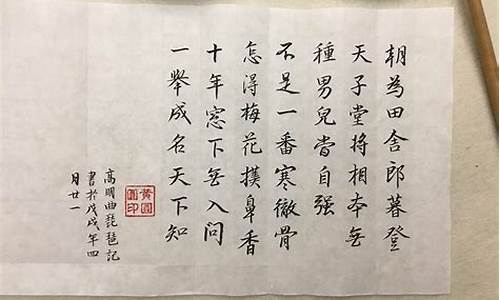 朝為田舍郎暮登
天子堂將相本無
種男兒當自强
不是一番寒徹骨
怎得梅花撲鼻香
十年窓下無人問
一舉成名天下知
高明曲琵琶記
書於戊戌年四
月廿一
黄圓
圓印